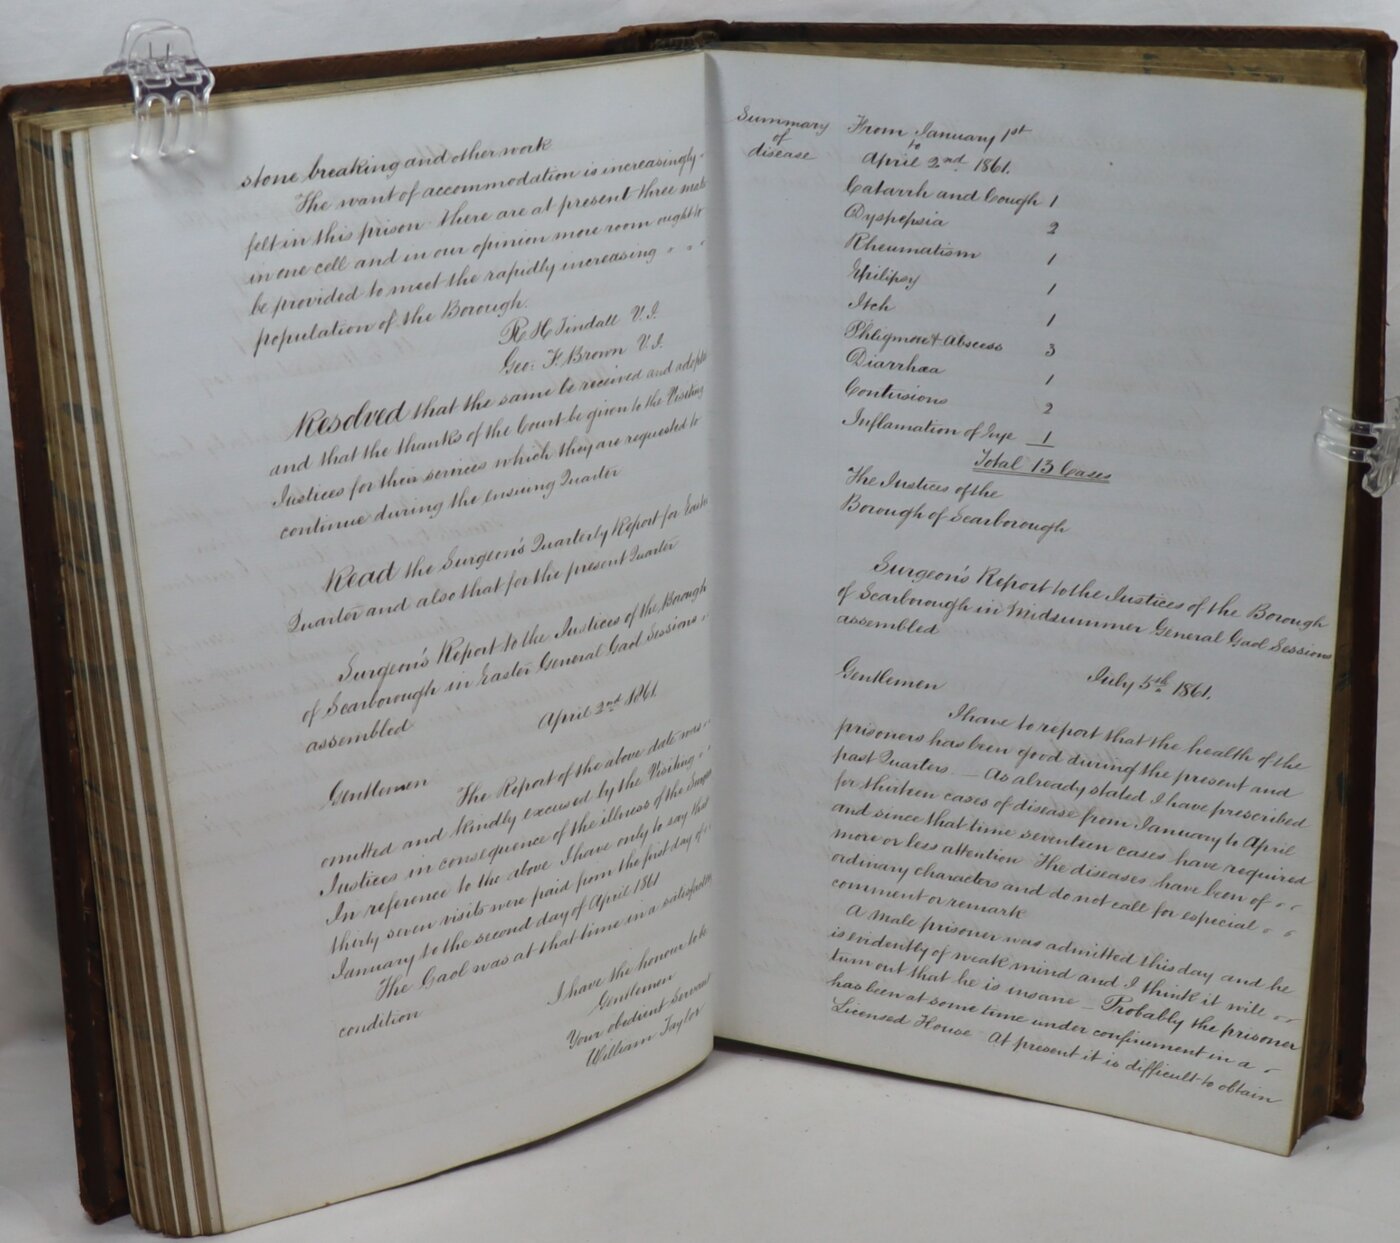 stone breaking and other work
The want of accommodation is increasingly -
felt in this prison there are at present three male
in one cell and in our opinion more room ought to
be provided to meet the rapidly increasing " " "
population of the Borough.
R H Tindall V. J.
Geo: F. Brown V. J.
Resolved that the same be received and adopted
and that the thanks of the Court be given to the Visiting
Justices for their services which they are requested to
continue during the ensuing Quarter
Read the Surgeon's Quarterly Report for Easter
Quarter and also that for the present Quarter
Surgeon's Report to the Justices of the Borough
of Scarborough in Easter General Gaol Sessions
assembled
April 2nd 1861
Gentlemen
The Report of the above date was
omitted and kindly excused by the Visiting
Justices in consequence of the illness of the Surgeon
In reference to the above I have only to say that
thirty seven visits were paid from the first day of
January to the second day of April 1861
The Gaol was at that time in a satisfactory
condition
I have the honour to be
Gentlemen
Your obedient Servant
William Taylor
Summary
of
disease
From January 1st
to
April 2nd 1861.
Catarrh and Cough 1
Dyspepsia 2
Rheumatism 1
Epilipsy 1
Itch 1
Phligmon & Abscess 3
Diarrhœa 1
Contusions 2
Inflamation of Eye 1
Total 13 Cases
The Justices of the
Borough of Scarborough
Surgeon's Report to the Justices of the Borough
of Scarborough in Midsummer General Gaol Sessions
assembled
July 5th 1861.
Gentlemen
I have to report that the health of the
prisoners has been good during the present and
past Quarters. — As already stated I have prescribed
for thirteen cases of disease from January to April
and since that time seventeen cases have required
more or less attention The diseases have been of " "
ordinary characters and do not call for especial " "
comment or remark
A male prisoner was admitted this day and he
is evidently of weak mind and I think it will " "
turn out that he is insane — Probably the prisoner
has been at some time under confinement in a "
Licensed House - At present it is difficult to obtain